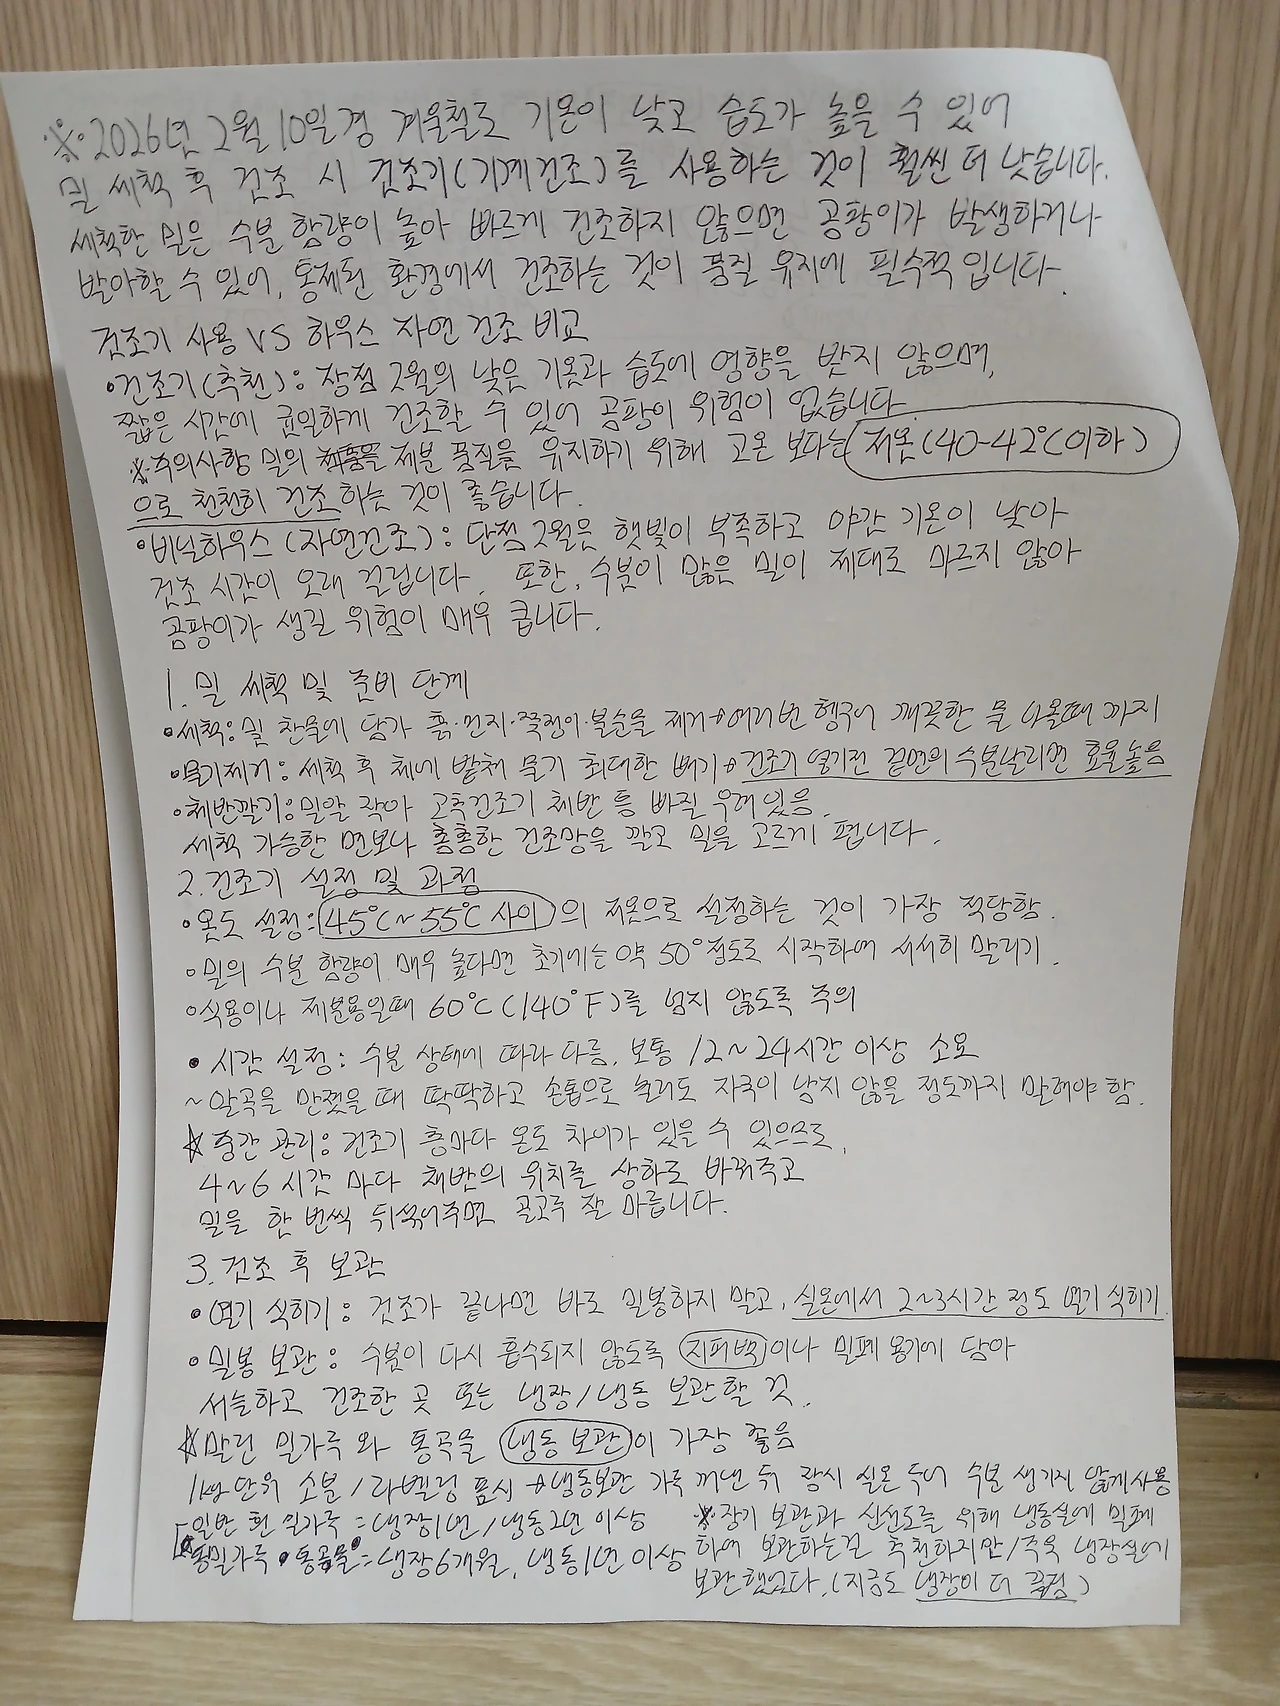 ※ 2026년 2월 10일경 겨울철로 기온이 낮고 습도가 높을 수 있어
밀 세척 후 건조 시 건조기(기계건조)를 사용하는 것이 훨씬 더 낫습니다.
세척한 밀은 수분 함량이 높아 빠르게 건조하지 않으면 곰팡이가 발생하거나
발아할 수 있어, 통제된 환경에서 건조하는 것이 품질 유지에 필수적입니다.
건조기 사용 VS 하우스 자연 건조 비교
•건조기(추천): 장점 2월의 낮은 기온과 습도에 영향을 받지 않으며,
짧은 시간에 균일하게 건조할 수 있어 곰팡이 위험이 없습니다.
※주의사항 밀의 제분 품질을 유지하기 위해 고온 보다는 저온(40~42℃이하)
으로 천천히 건조하는 것이 좋습니다.
•비닐하우스(자연건조): 단점 2월은 햇빛이 부족하고 야간 기온이 낮아
건조 시간이 오래 걸립니다. 또한, 수분이 많은 밀이 제대로 마르지 않아
곰팡이가 생길 위험이 매우 큽니다.
1. 밀 세척 및 준비 단계
•세척: 밀 찬물에 담가 흙·먼지·쭉정이·불순물 제거→여러번 헹구어 깨끗한 물 나올때 까지
•물기제거: 세척 후 체에 받쳐 물기 최대한 빼기→건조기 넣기전 겉면의 수분날리면 효율높음
•채반깔기: 밀알 작아 고추건조기 채반 틈 빠질 우려있음.
세척 가능한 면보나 촘촘한 건조망을 깔고 밀을 고르게 폅니다.
2. 건조기 설정 및 과정
•온도 설정: 45℃~55℃ 사이의 저온으로 설정하는 것이 가장 적당함.
◦밀의 수분 함량이 매우 높다면 초기에는 약 50°정도로 시작하여 서서히 말리기.
◦식용이나 제분용일때 60℃(140°F)를 넘지 않도록 주의
• 시간 설정: 수분 상태에 따라 다름. 보통 12~24시간 이상 소요
~알곡을 만졌을 때 딱딱하고 손톱으로 눌러도 자국이 남지 않을 정도까지 말려야 함.
☆ 중간 관리: 건조기 층마다 온도 차이가 있을 수 있으므로,
4~6시간 마다 채반의 위치를 상하로 바꿔주고
밀을 한 번씩 뒤섞어주면 골고루 잘 마릅니다.
3. 건조 후 보관
• 열기 식히기: 건조가 끝나면 바로 밀봉하지 말고, 실온에서 2~3시간 정도 열기 식히기.
• 밀봉 보관: 수분이 다시 흡수되지 않도록 지퍼백이나 밀폐 용기에 담아
서늘하고 건조한 곳 또는 냉장/냉동 보관할 것.
☆말린 밀가루와 통곡물 냉동 보관이 가장 좋음
1kg단위 소분/라벨링 표시→냉동보관 가루 꺼낸 뒤 잠시 실온 두어 수분 생기지 않게 사용
일반 흰 밀가루=냉장1년/냉동2년 이상
통밀가루·통곡물=냉장6개월, 냉동1년 이상
※장기 보관과 신선도를 위해 냉동실에 밀폐
하여 보관하는걸 추천하지만/주욱 냉장실에
보관했었다.(지금도 냉장이 더 끌림)